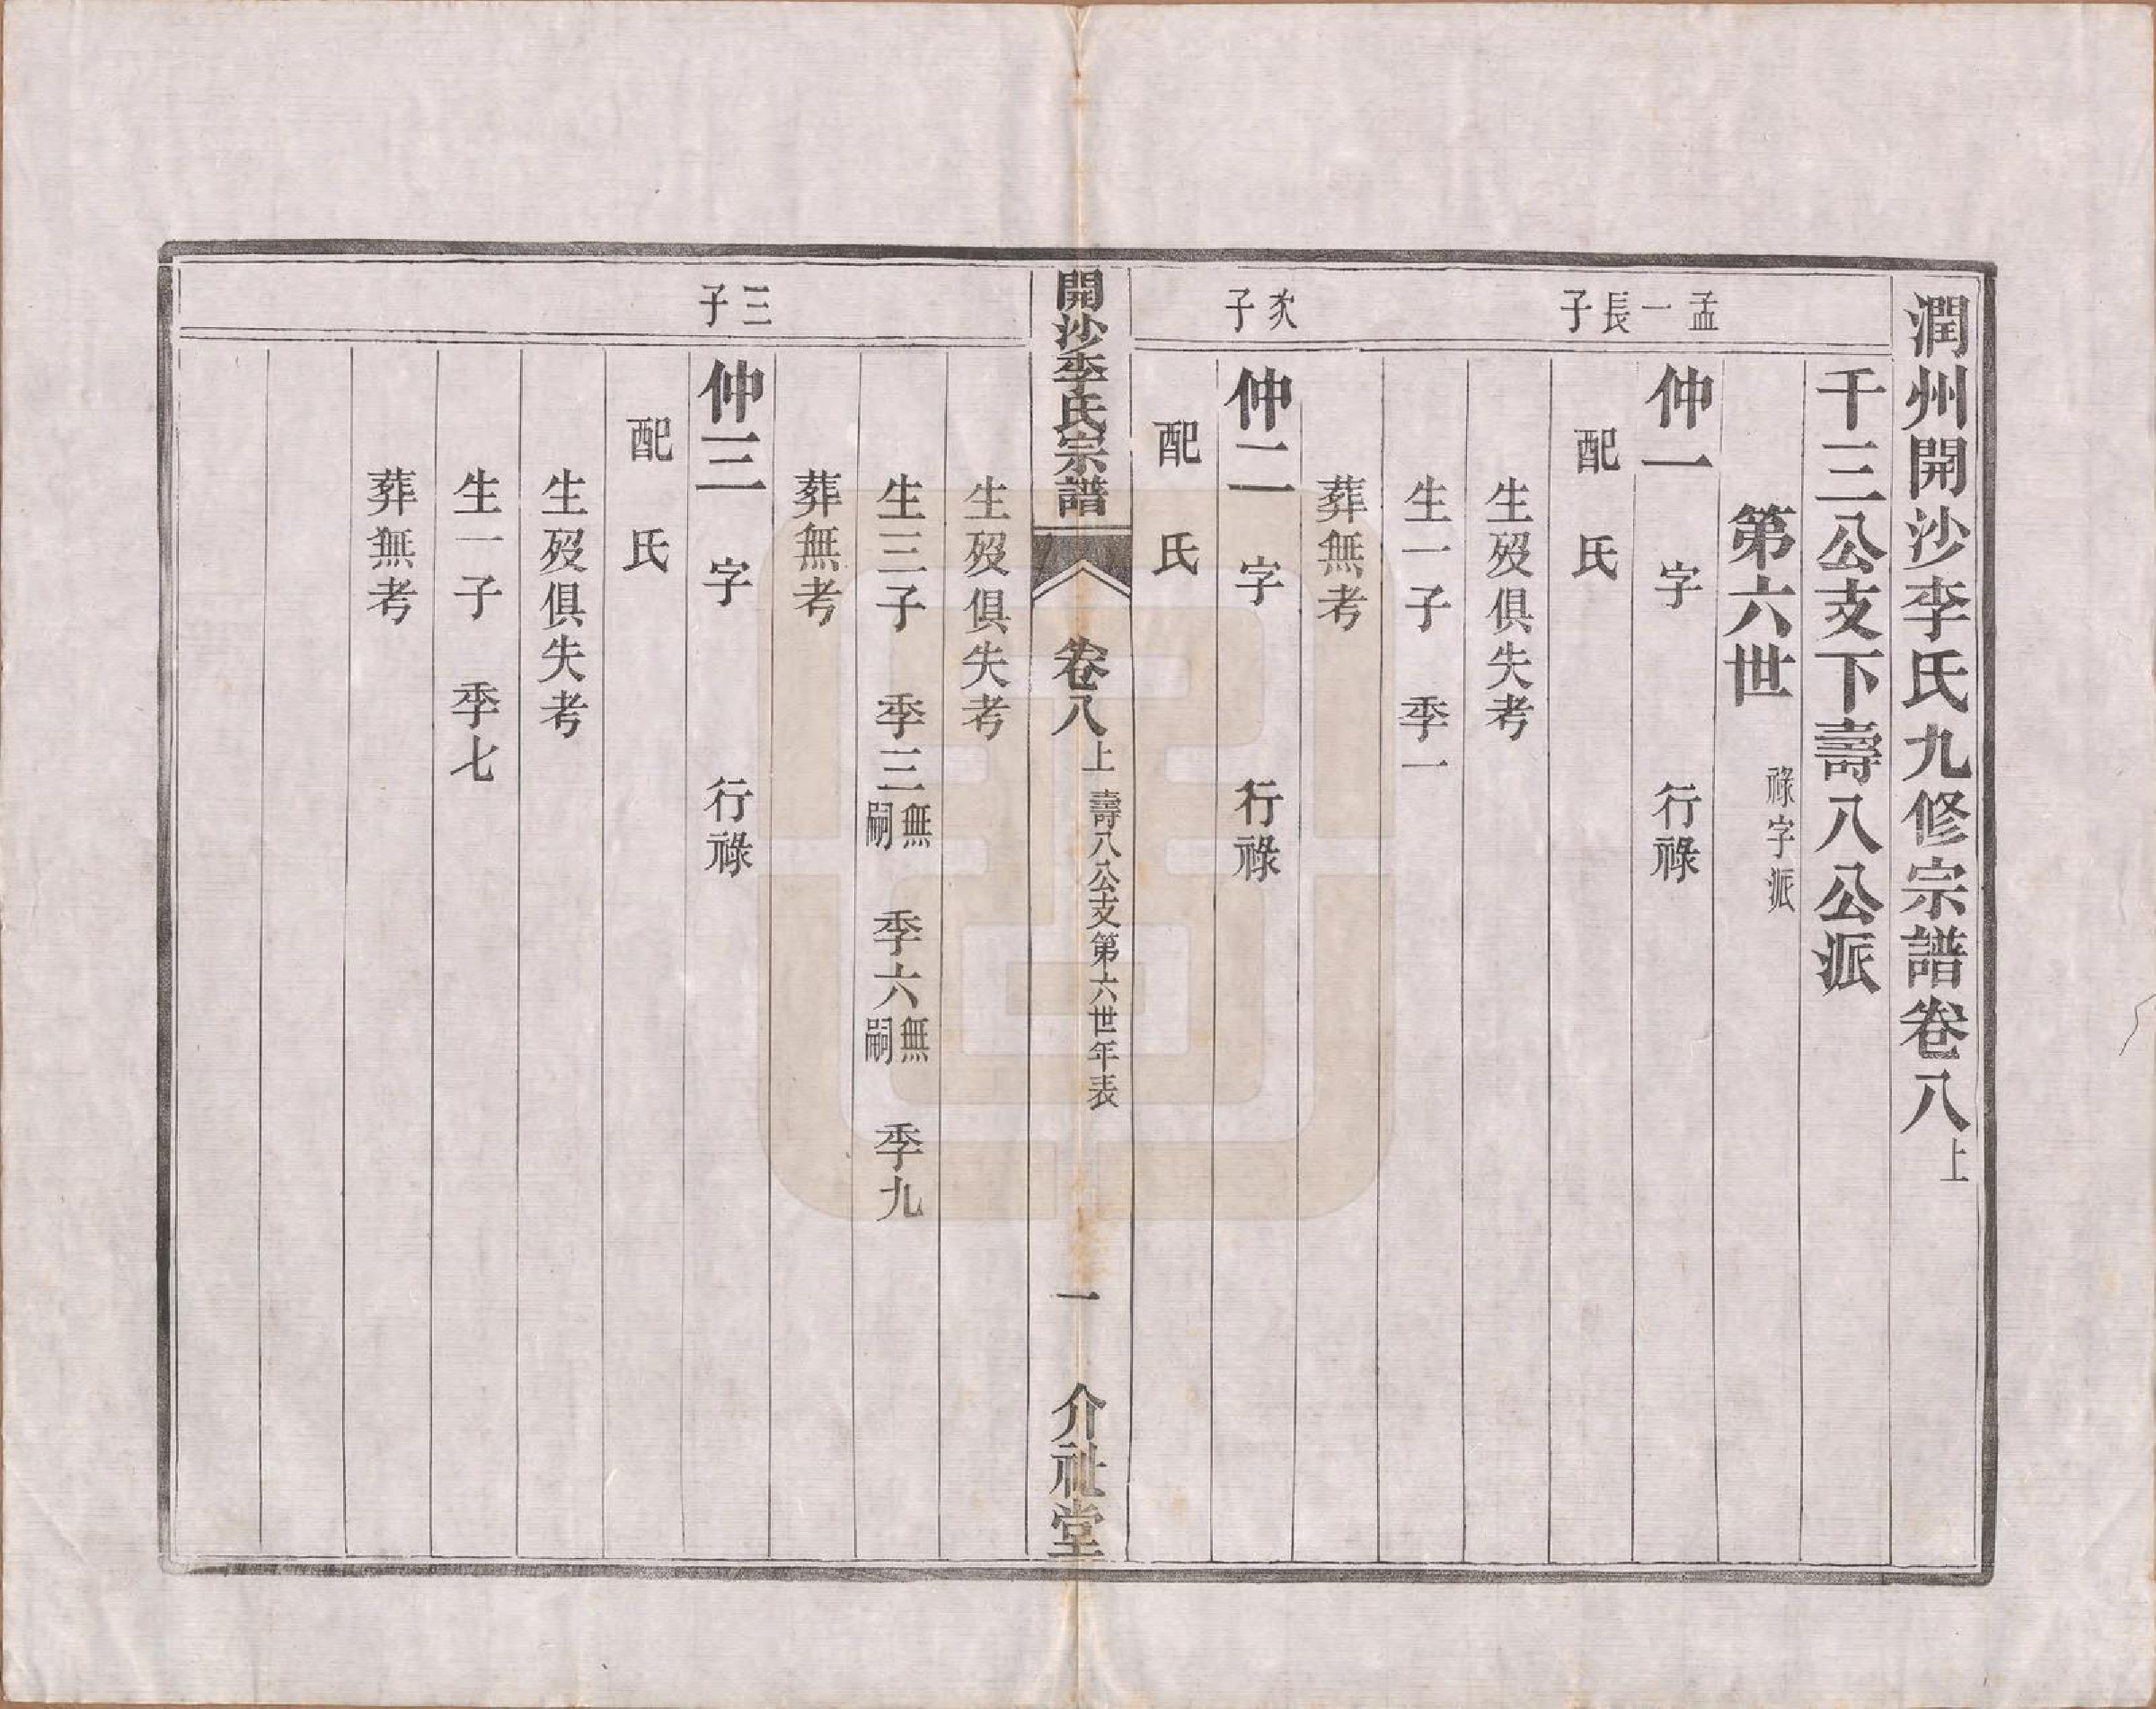 潤州開沙李氏九修宗譜卷八上
千三公支下壽八公派
第六世 祿字派
孟一長子
仲一 字 行祿
配 氏
生歿俱失考
生一子 季一
葬無考
次子
仲二 字 行祿
配 氏
開沙李氏宗譜 卷八上 壽八公支第六世年表 一 介祉堂
生歿俱失考
生三子 季三無嗣 季六無嗣 季九
葬無考
三子
仲三 字 行祿
配 氏
生歿俱失考
生一子 季七
葬無考